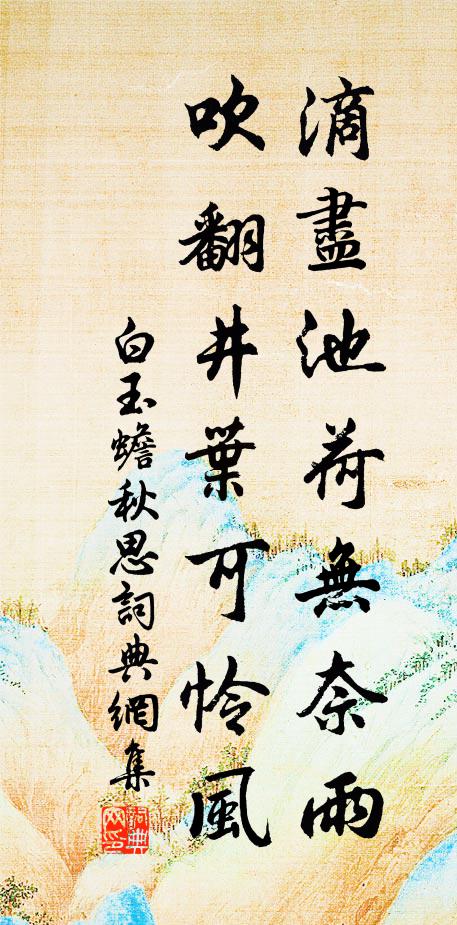 滴盡池荷無奈雨
吹翻井葉可怜風
白玉蟾秋思詞典網集